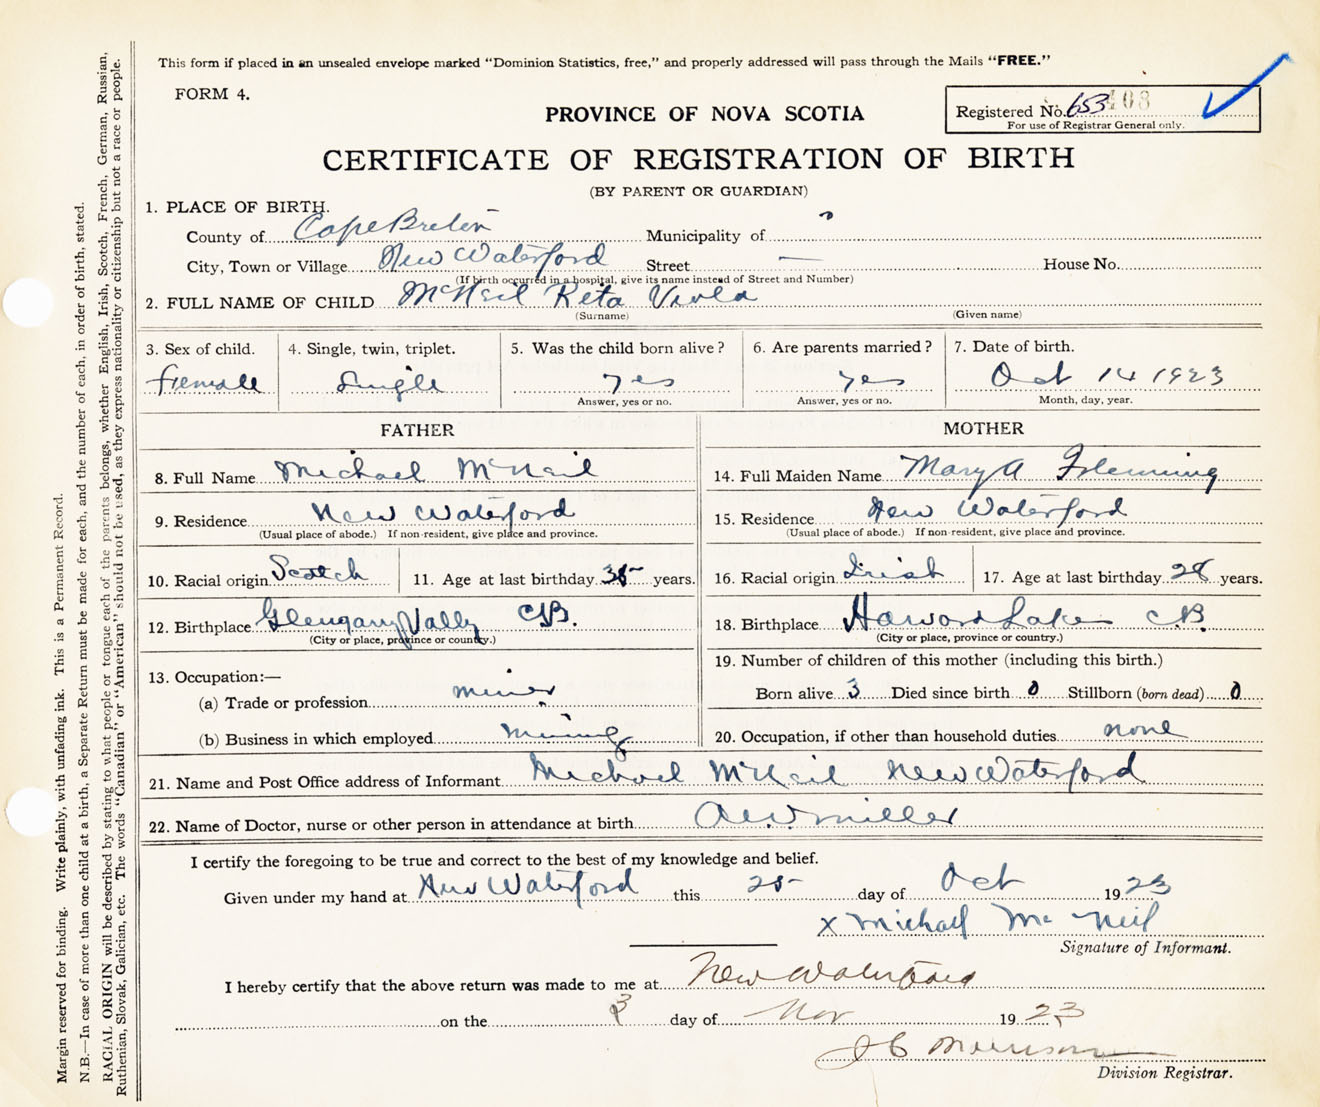 This form if placed in an unsealed envelope marked "Dominion Statistics, free," and properly addressed will pass through the Mails "FREE."
FORM 4.
PROVINCE OF NOVA SCOTIA
Registered No. 653 408
For use of Registrar General only.
CERTIFICATE OF REGISTRATION OF BIRTH
(BY PARENT OR GUARDIAN)
1. PLACE OF BIRTH.
County of Cape Breton Municipality of
City, Town or Village New Waterford Street — House No.
(If birth occurred in a hospital, give its name instead of Street and Number)
2. FULL NAME OF CHILD McNeil Reta Viola
(Surname) (Given name)
3. Sex of child. 4. Single, twin, triplet. 5. Was the child born alive? 6. Are parents married? 7. Date of birth.
Female Single yes yes Oct 14 1923
Answer, yes or no. Answer, yes or no. Month, day, year.
FATHER MOTHER
8. Full Name Michael McNeil 14. Full Maiden Name Mary A Flemming
9. Residence New Waterford 15. Residence New Waterford
(Usual place of abode.) If non-resident, give place and province. (Usual place of abode.) If non-resident, give place and province.
10. Racial origin Scotch 11. Age at last birthday 35 years. 16. Racial origin Irish 17. Age at last birthday 28 years.
12. Birthplace Glengary Vally CB. 18. Birthplace Lake C.B.
(City or place, province or country.) (City or place, province or country.)
13. Occupation:— 19. Number of children of this mother (including this birth.)
(a) Trade or profession miner Born alive 3 Died since birth 0 Stillborn (born dead) 0
(b) Business in which employed mining 20. Occupation, if other than household duties none
21. Name and Post Office address of Informant Michael McNeil New Waterford
22. Name of Doctor, nurse or other person in attendance at birth miller
I certify the foregoing to be true and correct to the best of my knowledge and belief.
Given under my hand at New Waterford this 25 day of Oct 1923
x Michael Mc Neil
Signature of Informant.
I hereby certify that the above return was made to me at New Waterford
on the 3 day of Nov 1923
J C Morrison
Division Registrar.
Margin reserved for binding. Write plainly, with unfading ink. This is a Permanent Record.
N.B.—In case of more than one child at a birth, a Separate Return must be made for each, and the number of each, in order of birth, stated.
RACIAL ORIGIN will be described by stating to what people or tongue each of the parents belongs, whether English, Irish, Scotch, French, German, Russian,
Ruthenian, Slovak, Galician, etc. The words "Canadian" or "American" should not be used, as they express nationality or citizenship but not a race or people.